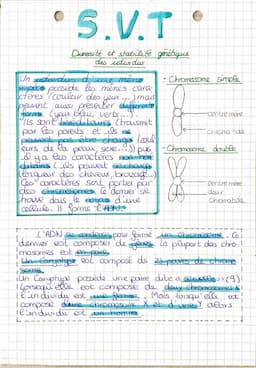 S.V.T
Diversité et stabilité génétique
des individus
Un individu d'une même
espèce possède les mêmes cara-
ctères (couleur des yeux ...) mais
peuvent aussi présenter différente
forme (yeux bleu, verts...).
Ils sont héréditaires (transmit
par les parents et ils ne
peuvent pas être changé (coul
eurs de la peau, sexe...)) puis
il y a des caractères non héré
ditaire (ils peuvent
(longueur des cheveux, bronzage...)
Ces caractères sont porter par
des chromosomes. Ce dernier se
trouve dans le noyau d'une
cellule. Il forme l'ADN
- Chromosome simple
centromère
chromatide
- Chromosome double
centromère
deux
chromatides
L'ADN se condense pour former un chromosome. Ce
dernier est composer de gènes. La plupart des chro-
mosomes est en paire.
Un caryotype est composé de 23 paires de chromo
somes.
Un Caryotype possède une paire dite « sexuelle » (9)
lorsqu'elle est composé de deux chromosomes X
l'individu est une femme. Mais lorsqu'elle est
composé d'une chromosome X et d'une Y alors
l'individu est un homme